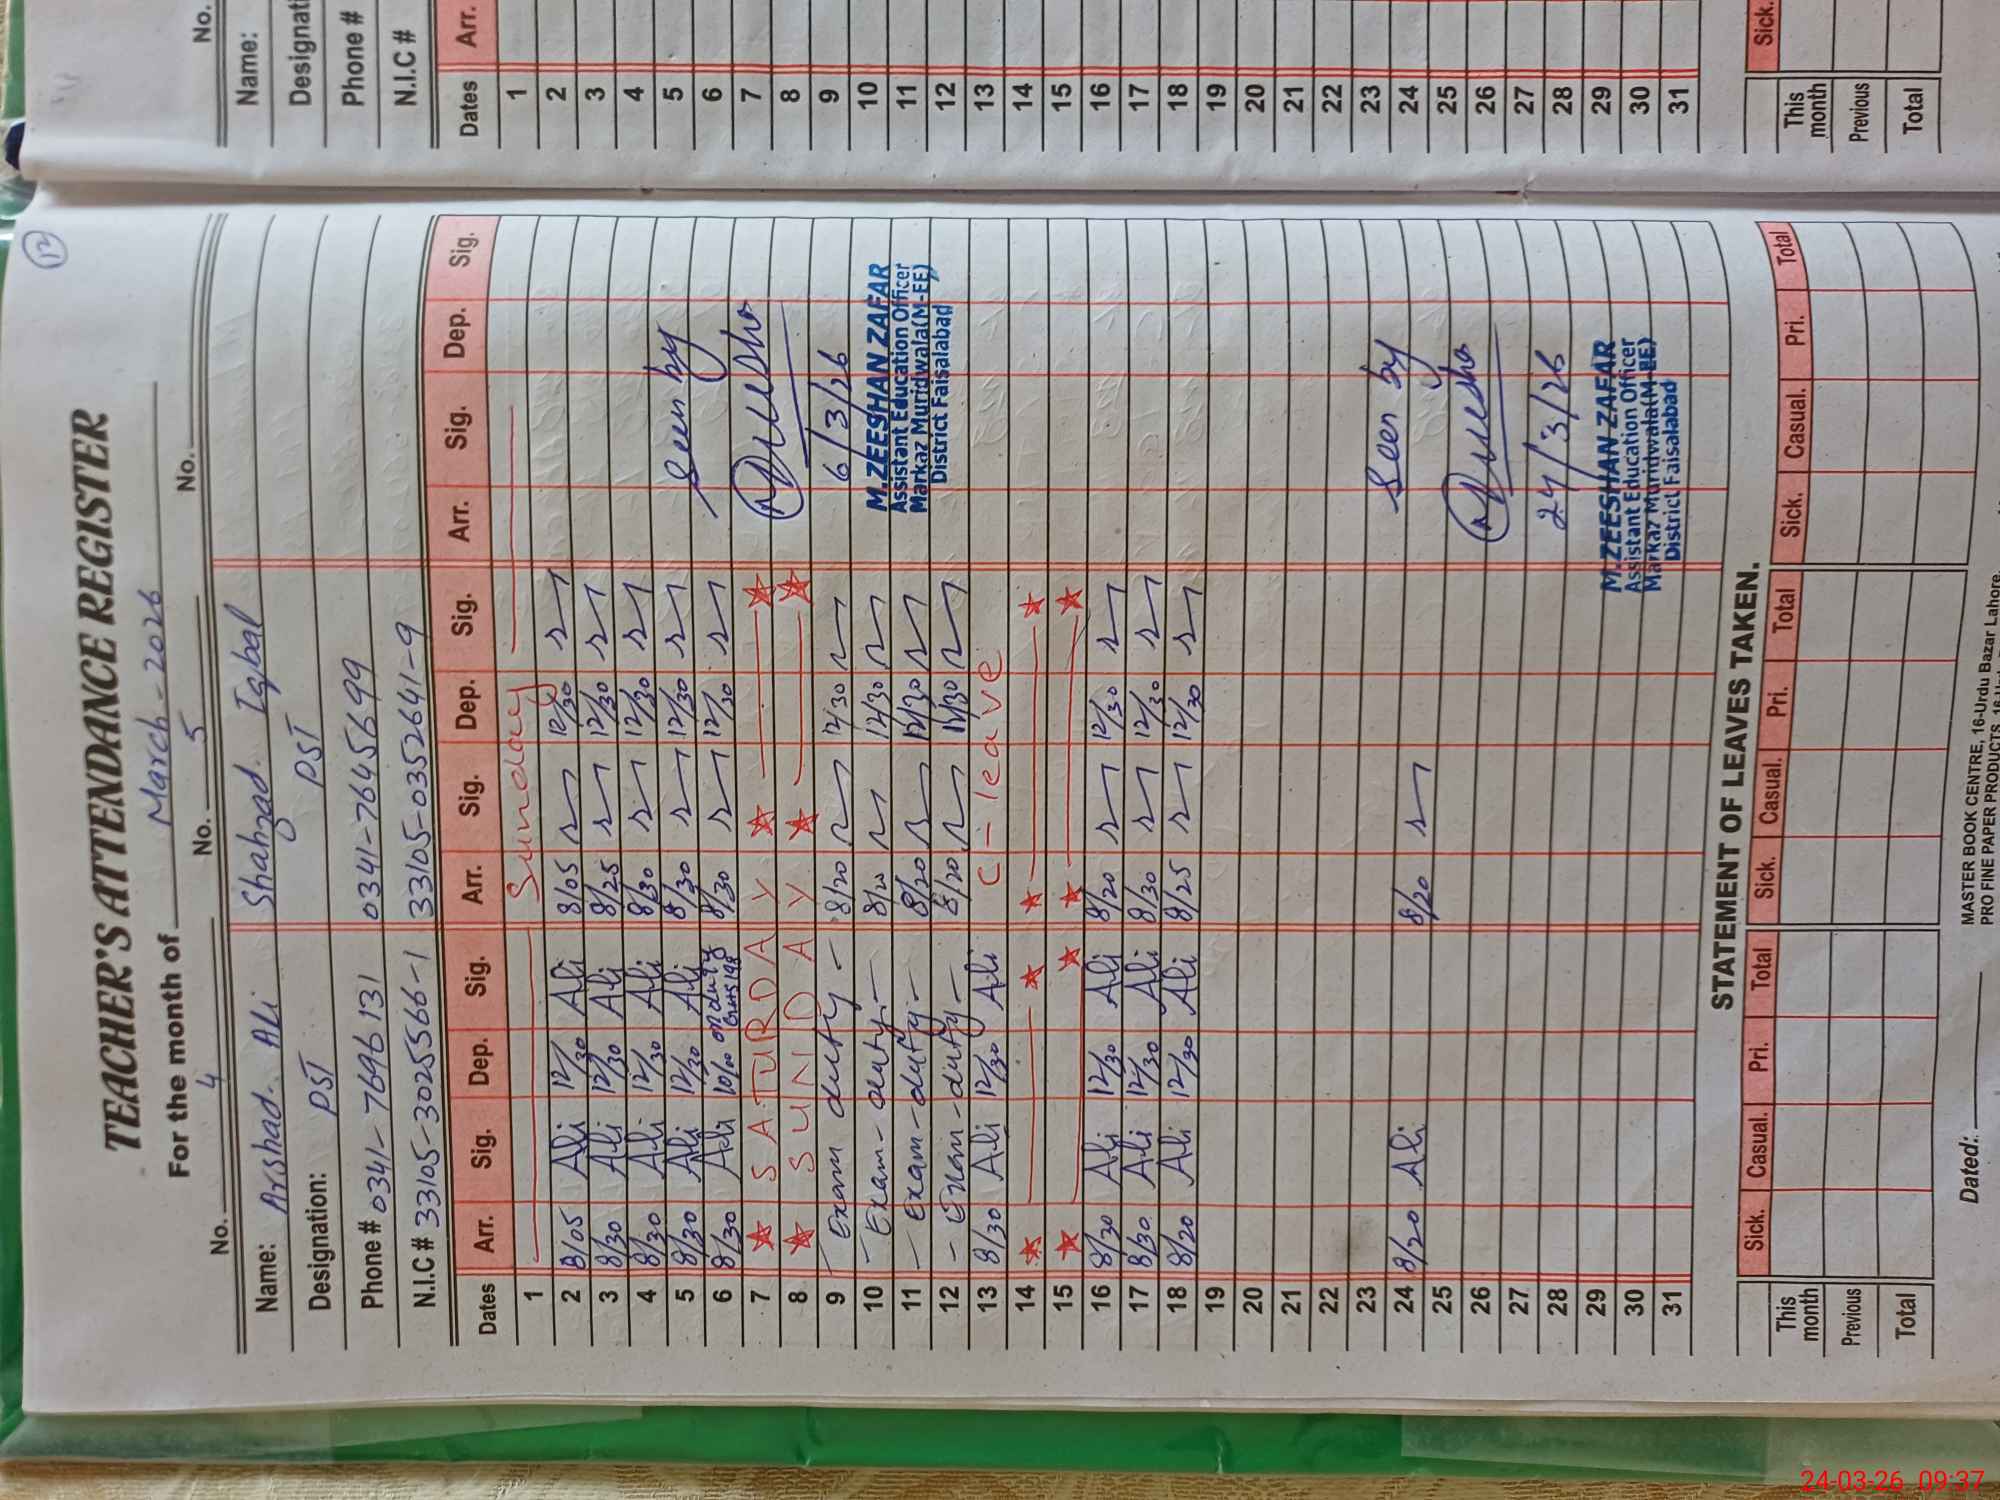 12
TEACHER'S ATTENDANCE REGISTER
For the month of March-2026
No. 4 No. 5 No.
Name: Arshad. Ali Shahzad Iqbal
Designation: PST PST
Phone # 0341-7696131 0341-7645699
N.I.C # 33105-3025566-1 33105-0352641-9
Dates Arr. Sig. Dep. Sig. Arr. Sig. Dep. Sig. Arr. Sig. Dep. Sig.
1 Sunday
2 8/05 Ali 12/30 Ali 8/05 12/30
3 8/30 Ali 12/30 Ali 8/25 12/30
4 8/30 Ali 12/30 Ali 8/30 12/30
5 8/30 Ali 12/30 Ali 8/30 12/30 Seen by
6 8/30 Ali 10/00 on duty 8/30 12/30
7 SATURDAY
8 SUNDAY
9 Exam duty - 8/20 12/30 6/3/26
10 - Exam-duty - 8/20 12/30 M.ZEESHAN ZAFAR
11 - Exam-duty - 8/20 12/30 Assistant Education Officer
Markaz Muridwala(M-EE)
12 - Exam-duty - 8/20 12/30 District Faisalabad
13 8/30 Ali 12/30 Ali C-leave
14
15
16 8/30 Ali 12/30 Ali 8/20 12/30
17 8/30 Ali 12/30 Ali 8/30 12/30
18 8/20 Ali 12/30 Ali 8/25 12/30
19
20
21
22
23
24 8/20 Ali 8/20 Seen by
25
26
27
28 24/3/26
29 M.ZEESHAN ZAFAR
30 Assistant Education Officer
Markaz Muridwala(M-EE)
31 District Faisalabad
STATEMENT OF LEAVES TAKEN.
Sick. Casual. Pri. Total Sick. Casual. Pri. Total Sick. Casual. Pri. Total
This month
Previous
Total
Dated:
MASTER BOOK CENTRE, 16-Urdu Bazar Lahore.
PRO FINE PAPER PRODUCTS
No.
Name:
Designati
Phone #
N.I.C #
Dates Arr.
1
2
3
4
5
6
7
8
9
10
11
12
13
14
15
16
17
18
19
20
21
22
23
24
25
26
27
28
29
30
31
Sick.
This month
Previous
Total
24-03-26 09:37